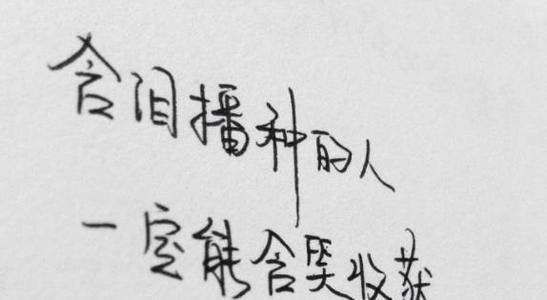 含泪播种的人
一定能含哭收获